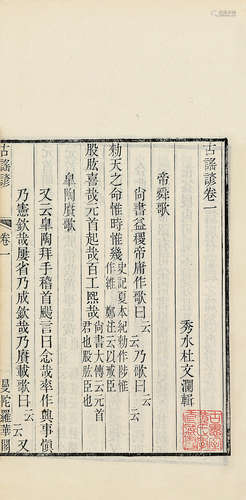 古謠諺卷一
秀水杜文瀾輯
帝舜歌
尚書益稷帝庸作歌曰云云乃歌曰云云
勑天之命惟時惟幾史記夏本紀勑作陟惟作維鄭注云以戒臣
股肱喜哉元首起哉百工熙哉尚書大傳云元首君也股肱臣也
皐陶賡歌
又云皐陶拜手稽首颺言曰念哉率作興事愼
乃憲欽哉屢省乃成欽哉乃賡載歌曰云云又
古謠諺
卷一
曼陀羅華閣